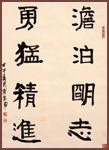 澹泊明志
勇猛精進